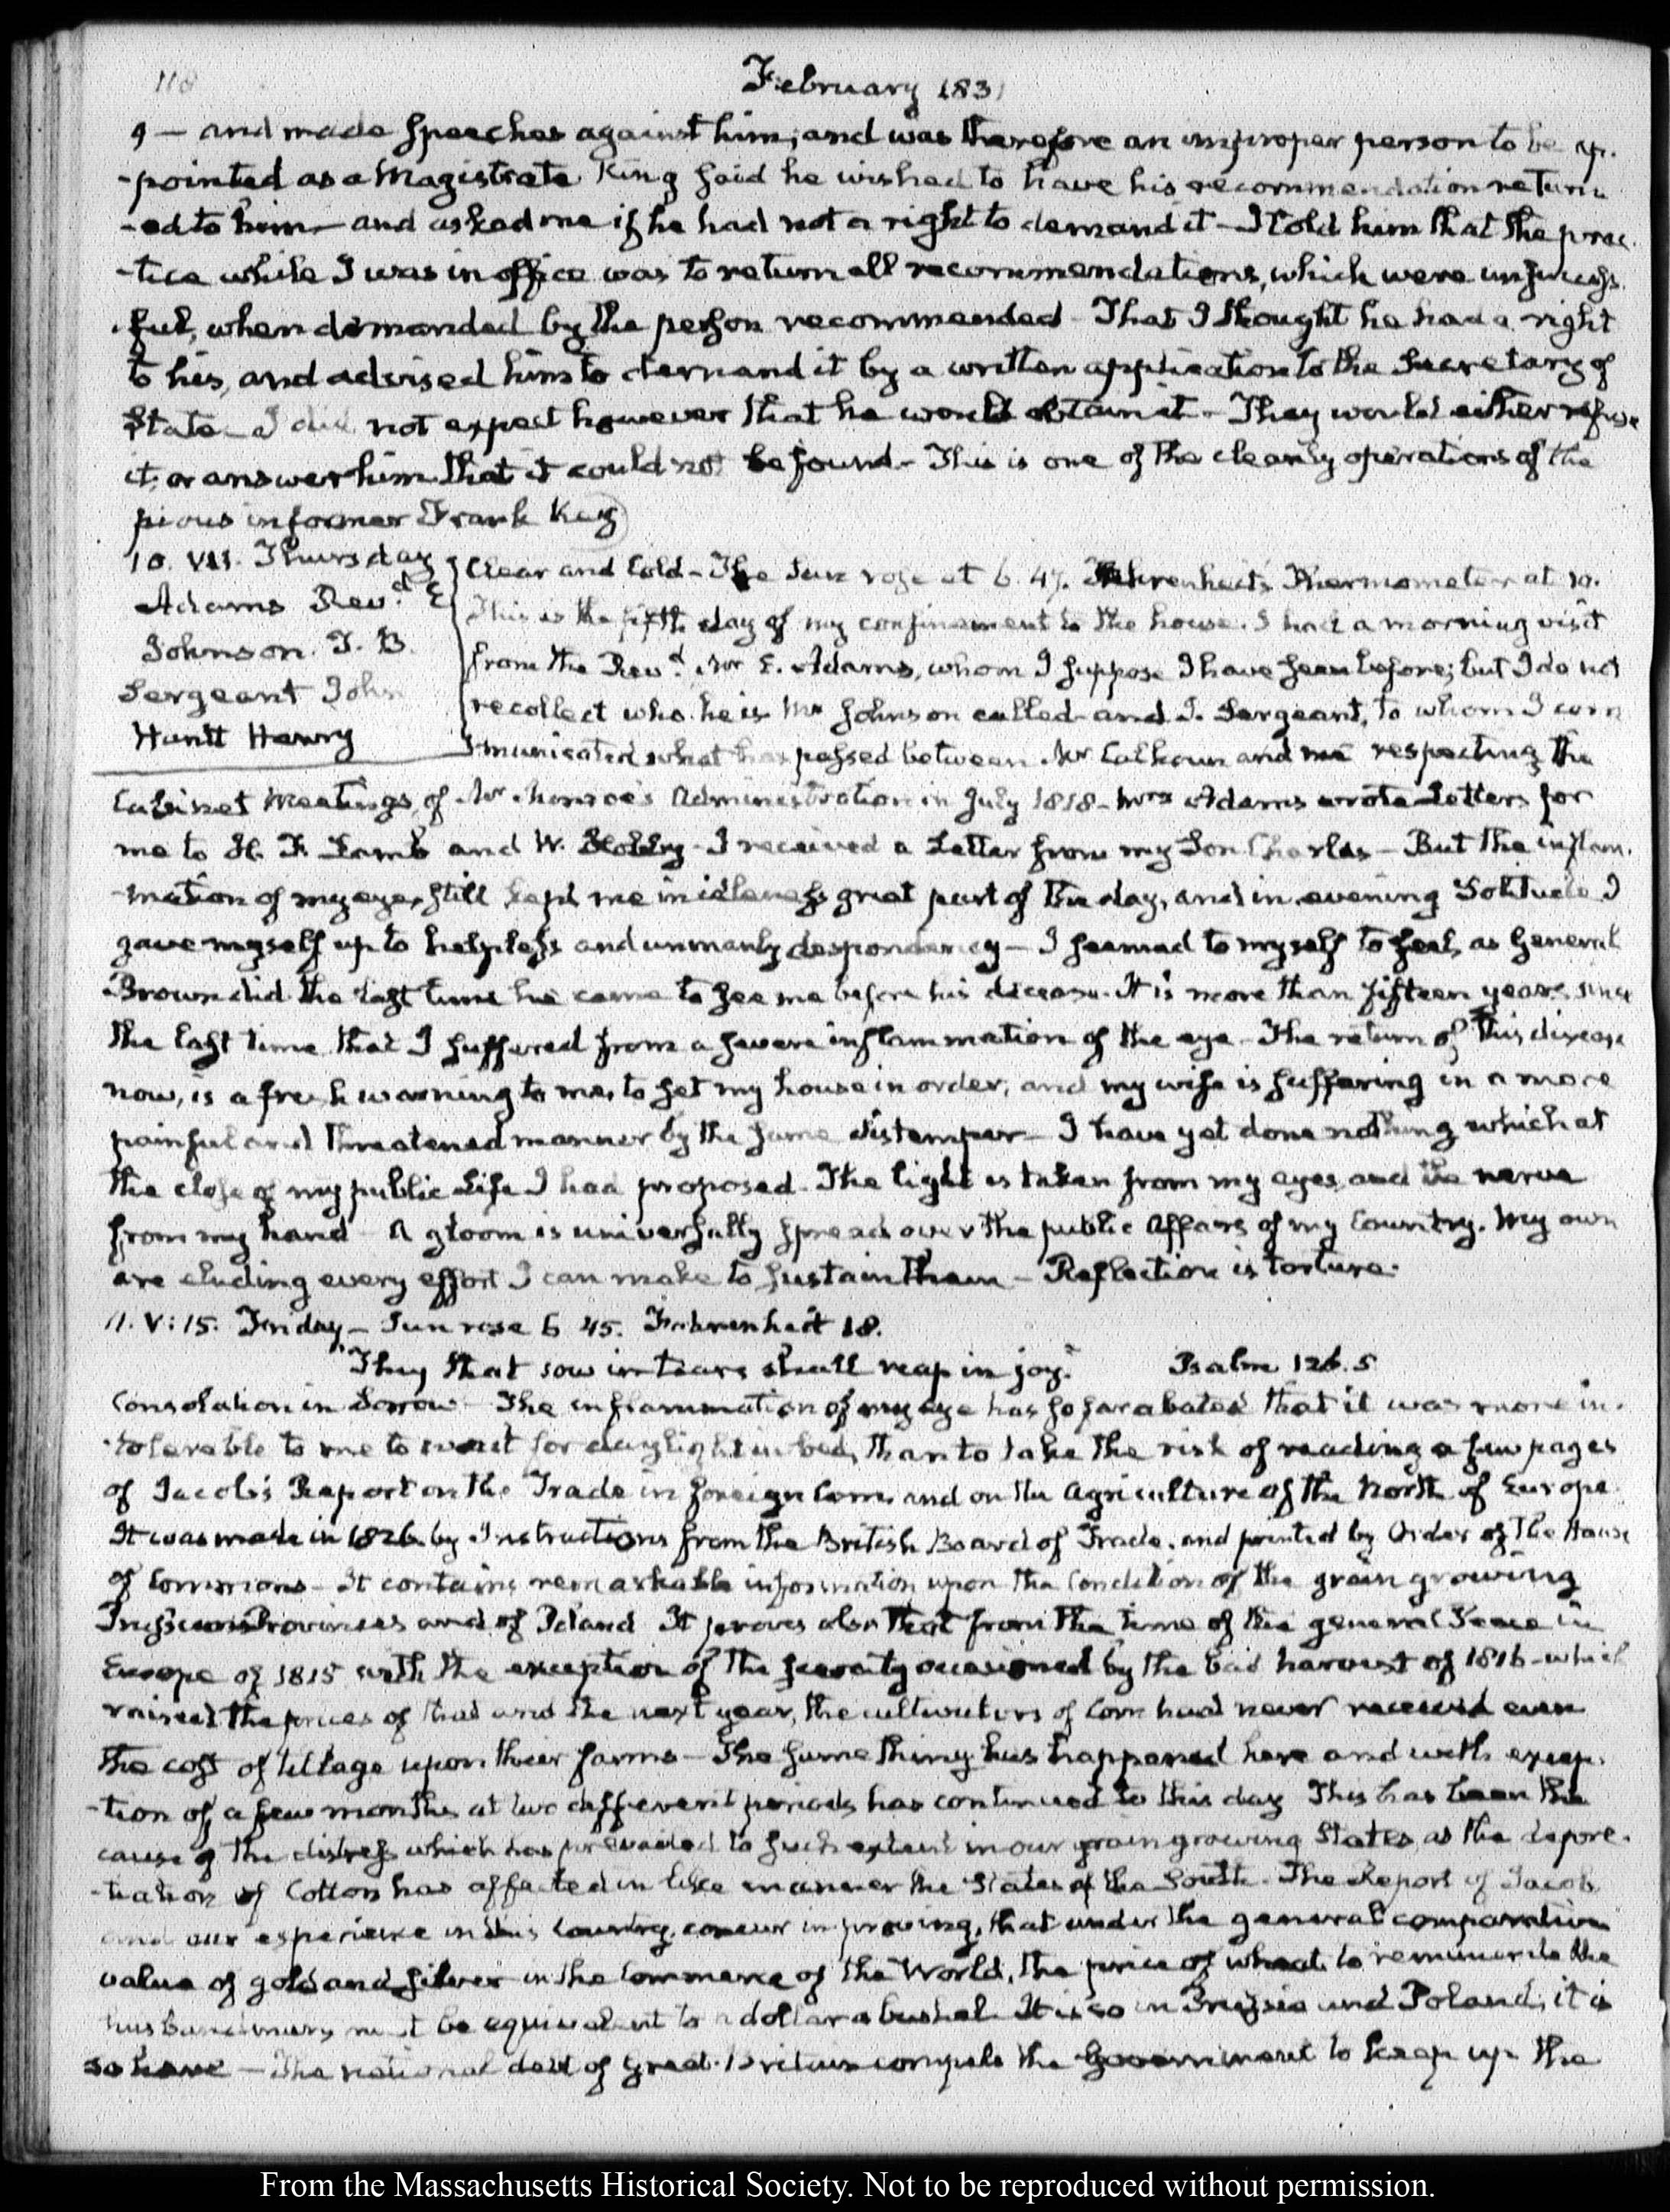 118
February 1831
9 — and made speeches against him; and was therefore an improper person to be ap-
-pointed as a Magistrate. King said he wished to have his recommendation return
-ed to him — and asked me if he had not a right to demand it — I told him that the prac-
-tice while I was in office was to return all recommendations, which were unsuccess-
-ful, when demanded by the person recommended — That I thought he had a right
to his, and advised him to demand it by a written application to the Secretary of
State — I did not expect however that he would obtain it — They would either refuse
it, or answer him that it could not be found — This is one of the cleanly operations of the
pious informer Frank Key
10. VII. Thursday
Adams Revd. E
Johnson. T. B.
Sergeant John
Huntt Henry
Clear and Cold — The Sun rose at 6. 47. Fahrenheit's Thermometer at 10.
This is the fifth day of my confinement to the house. I had a morning visit
from the Revd. Mr E. Adams, whom I suppose I have seen before; but I do not
recollect who he is. Mr Johnson called and J. Sergeant, to whom I com
municated what has passed between Mr Calhoun and me respecting the
Cabinet Meetings, of Mr Monroe's Administration in July 1818 — Mrs Adams wrote Letters for
me to and W. I received a Letter from my Son Charles — But the inflam-
-mation of my eyes, still kept me in idleness great part of the day, and in evening Solitude I
gave myself up to helpless and unmanly despondency — I seemed to myself to feel, as General
Brown did the last time he came to see me before his decease. It is more than fifteen years since
the last time that I suffered from a severe inflammation of the eye — The return of this disease
now, is a fresh warning to me, to set my house in order; and my wife is suffering in a more
painful and threatened manner by the same distemper — I have yet done nothing which at
the close of my public Life I had proposed. The light is taken from my eyes, and the nerve
from my hand — A gloom is universally spread over the public Affairs of my Country. My own
are eluding every effort I can make to sustain them — Reflection is torture.
11. V: 15. Friday — Sun rose 6 45. Fahrenheit 18.
"They that sow in tears shall reap in joy." Psalm 126. 5
Consolation in Sorrow — The inflammation of my eye has so far abated that it was more in-
-tolerable to me to wait for daylight in bed, than to take the risk of reading a few pages
of Jacob's Report on the Trade in foreign Corn, and on the Agriculture of the North of Europe.
It was made in 1826 by Instructions from the British Board of Trade, and printed by Order of the House
of Commons — It contains remarkable information upon the Condition of the grain growing
Prussian Provinces and of Poland. It proves also that from the time of the general Peace in
Europe of 1815 with the exception of the scarcity occasioned by the bad harvest of 1816 — which
raised the prices of that and the next year, the cultivators of Corn had never received even
the cost of tillage upon their farms — The same thing has happened here and with excep-
-tion of a few months at two different periods has continued to this day. This has been the
cause of the distress which has prevailed to such extent in our grain growing States, as the depre-
-tiation of Cotton has affected in like manner the States of the South — The Report of Jacob
and our experience in this Country, concur in proving, that under the general comparative
value of gold and silver in the Commerce of the World, the price of wheat to remunerate the
husbandman, must be equivalent to a dollar a bushel. It is so in Prussia and Poland; it is
so here — The national debt of Great-Britain compels the Government to keep up the
From the Massachusetts Historical Society. Not to be reproduced without permission.